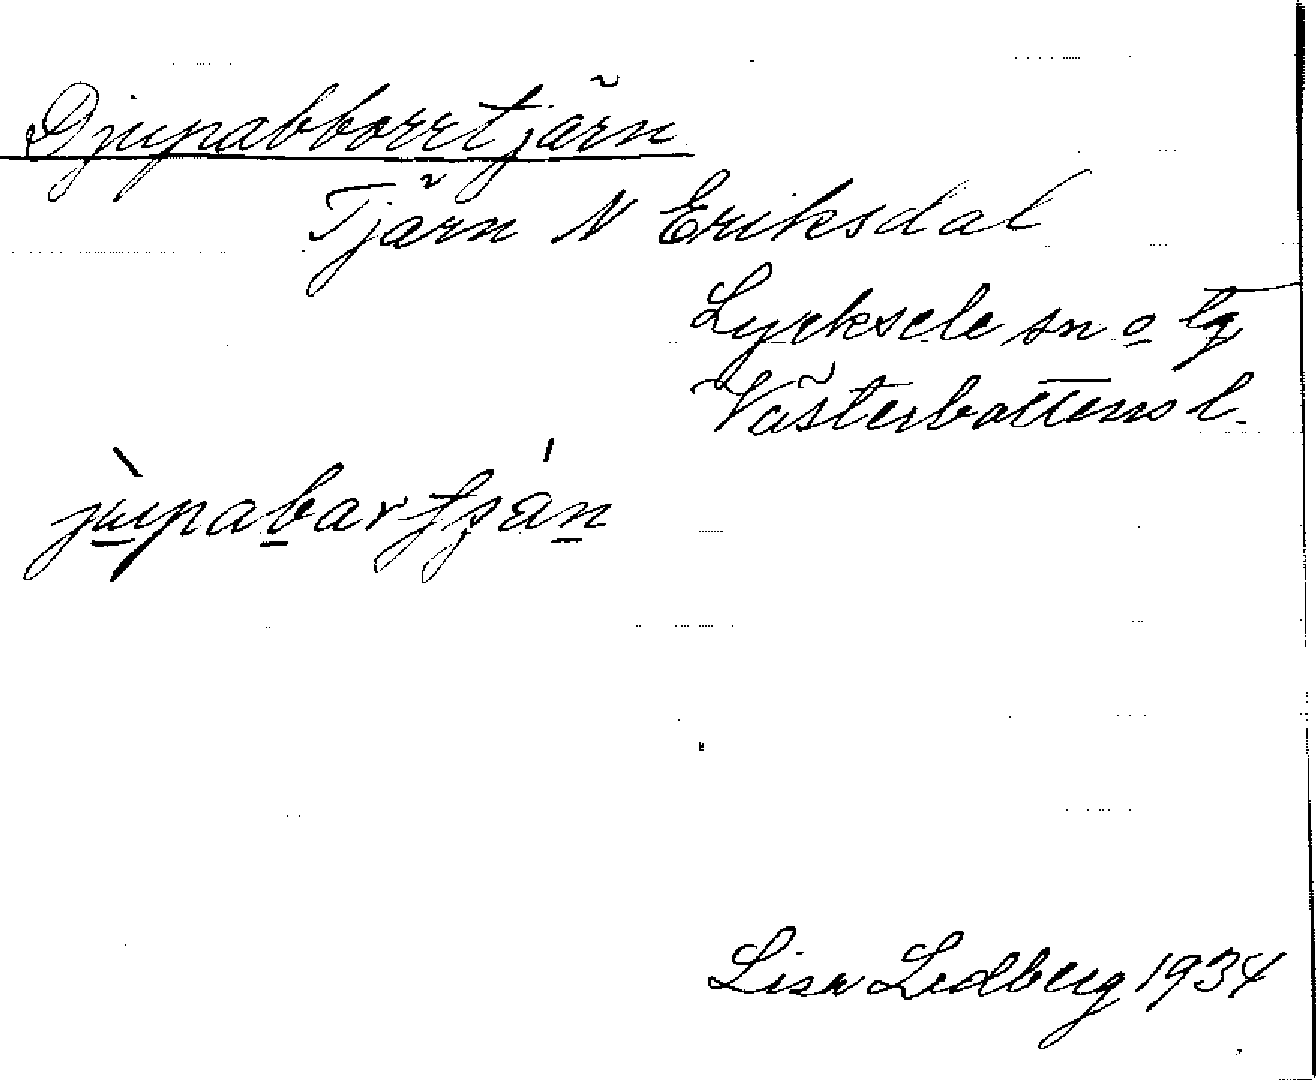 Djupabborrtjärn
Tjärn N Eriksdal
Lycksele sn o lg
Västerbottens l.
Lisa Lidberg 1934